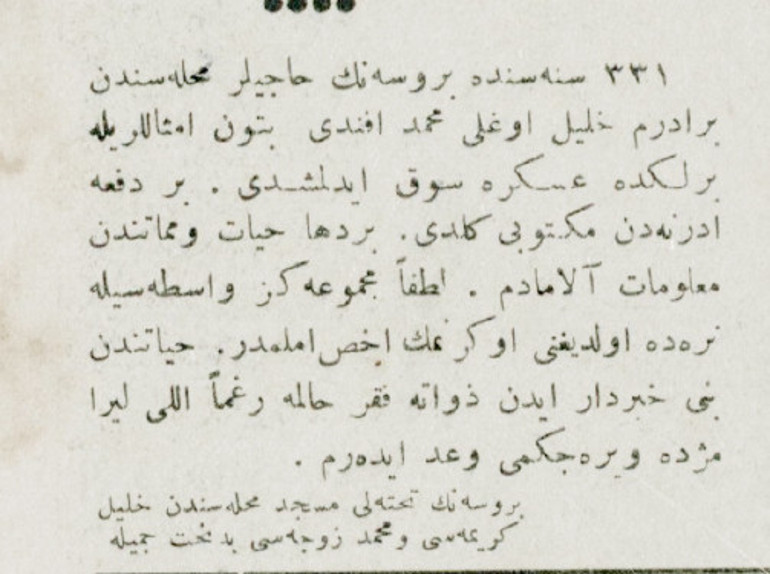 ٣٣١ سنه‌سنده بروسه‌نك حاجيلر محله‌سندن
برادرم خليل اوغلى محمد افندى بتون امثالريله
برلكده عسكره سوق ايدلمشدى . بر دفعه
ادرنه‌دن مكتوبى كلدى. بردها حيات ومماتندن
معلومات آلامادم . لطفاً مجموعه‌كز واسطه‌سيله
نره‌ده اولديغنى اوكرنمك اخص املمدر. حياتندن
بنى خبردار ايدن ذواته فقر حالمه رغماً اللى ليرا
مژده ويره‌جكمى وعد ايده‌رم .
بروسه‌نك تخته‌لى مسجد محله‌سندن خليل
كريمه‌سى ومحمد زوجه‌سى بدبخت جميله